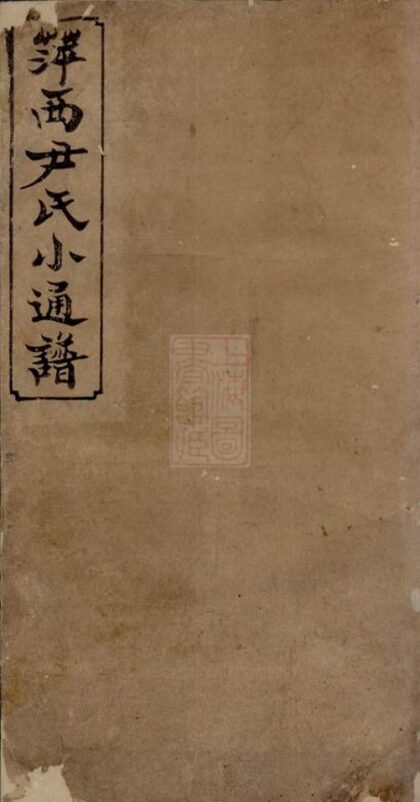 萍西尹氏小通譜
上海圖
書館藏